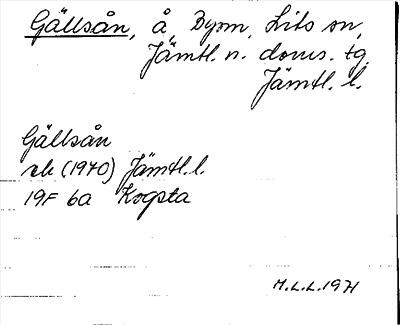 Gällsån, å, Byom, Lits sn,
Jämtl. n. doms. tg.
Jämtl. l.
Gällsån
ek (1970) Jämtl. l.
19F 6a Kogsta
M.L.L. 1971